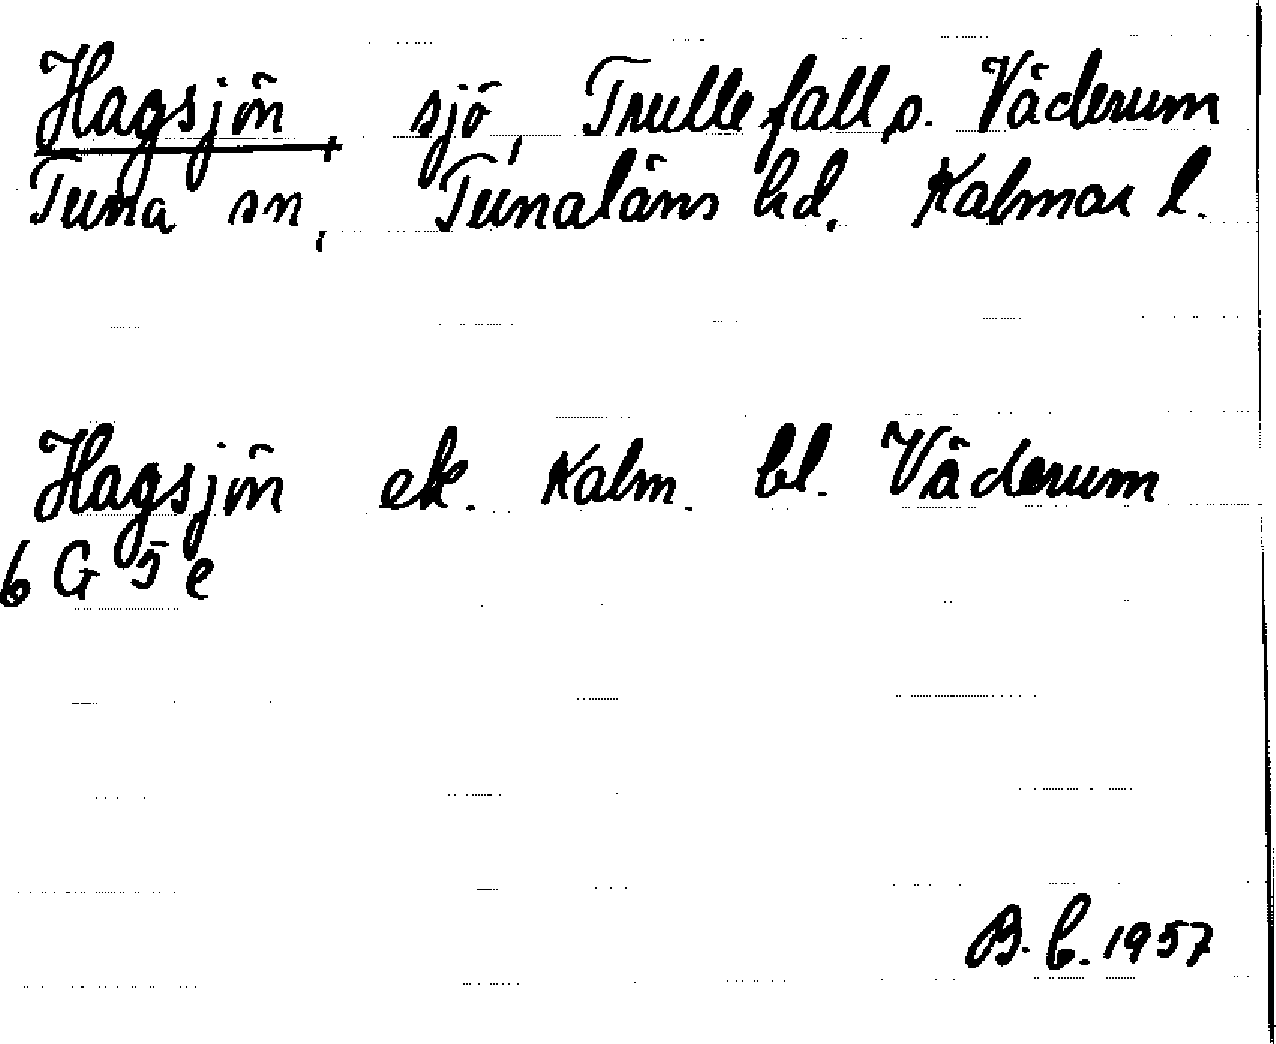 Hagsjön, sjö, Trullefall p. Väderum
Tuna sn, Tunaläns hd. Kalmar l.
Hagsjön ek. Kalm. bl. Väderum
6 G 5 e
B. b. 1957